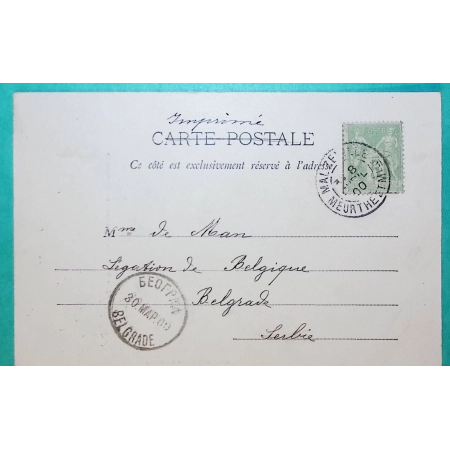 Imprimé
CARTE POSTALE
Ce côté est exclusivement réservé à l'adresse
MALZEVILLE
MEURTHE
00
Mme de Man
Légation de Belgique
Belgrade
Serbie
БЕОГРАД
30 MAP 00
BELGRADE